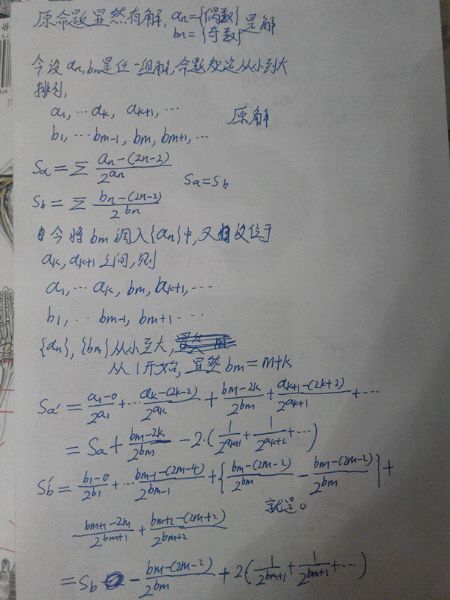 原命题显然有解, an={偶数}
bn={奇数} 是解
今设an,bn是任一组解,命题规定从小到大
排列,
a1,…ak, ak+1,…
b1,…bm-1, bm, bm+1,… 原解
Sa=∑ (an-(2n-2))/2^an
Sb=∑ (bn-(2n-2))/2^bn Sa=Sb
今将bm调入{an}中,又设位于
ak,ak+1之间,则
a1,…ak, bm, ak+1,…
b1,…bm-1, bm+1…
{an},{bn}从小至大,
从1开始,显然bm=m+k
Sa'=(a1-0)/2^a1+…(ak-(2k-2))/2^ak+(bm-2k)/2^bm+(ak+1-(2k+2))/2^ak+1+…
=Sa+(bm-2k)/2^bm-2·(1/2^ak+1+1/2^ak+2+…)
Sb'=(b1-0)/2^b1+…(bm-1-(2m-4))/2^bm-1+{(bm-(2m-2))/2^bm-(bm-(2m-2))/2^bm}+
就是0
(bm+1-2m)/2^bm+1+(bm+2-(2m+2))/2^bm+2
=Sb-(bm-(2m-2))/2^bm+2(1/2^bm+1+1/2^bm+1+…)